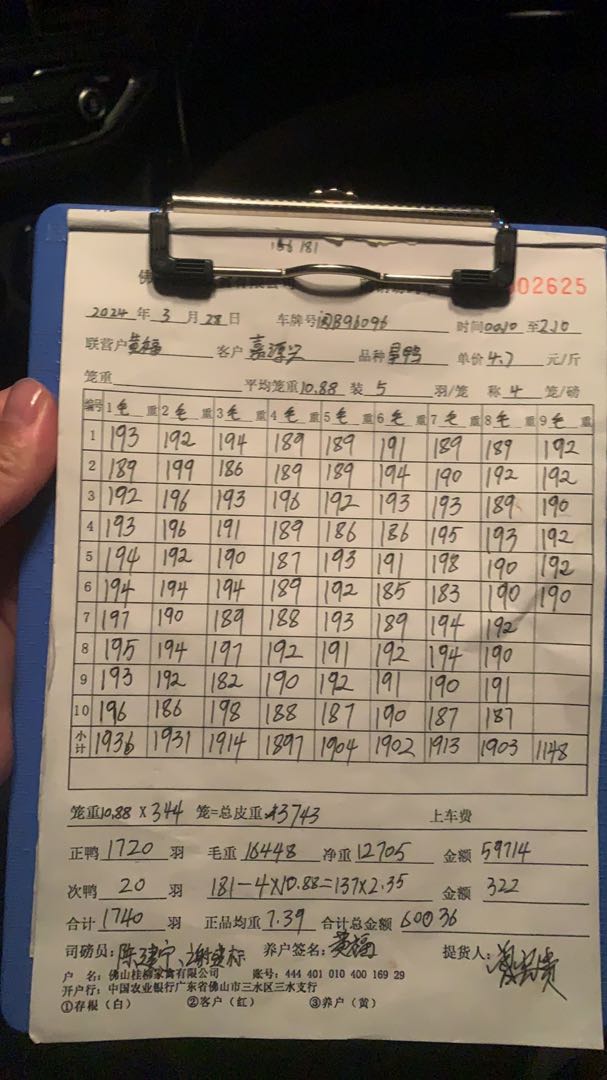 156 181
佛
有限公司
002625
2024 年 3 月 28 日 车牌号闽B96096 时间0010 至210
联营户黄福 客户 嘉源兴 品种 旱鸭 单价4.7 元/斤
笼重 平均笼重10.88 装 5 羽/笼 称 4 笼/磅
编号 1毛重 2毛重 3毛重 4毛重 5毛重 6毛重 7毛重 8毛重 9毛重
1 193 192 194 189 189 191 189 189 192
2 189 199 186 189 189 194 190 192 192
3 192 196 193 196 192 193 193 189 190
4 193 196 191 189 186 186 195 193 192
5 194 192 190 187 193 191 198 190 192
6 194 194 194 189 192 185 183 190 190
7 197 190 189 188 193 189 194 192
8 195 194 197 192 191 192 194 190
9 193 192 182 190 192 191 190 191
10 196 186 198 188 187 190 187 187
小计 1936 1931 1914 1897 1904 1902 1913 1903 1148
笼重10.88 X 344 笼=总皮重 3743 上车费
正鸭 1720 羽 毛重 16448 净重 12705 金额 59714
次鸭 20 羽 181-4X10.88=137X2.35 金额 322
合计 1740 羽 正品均重 7.39 合计总金额 60036
司磅员: 陈建宁、谢建标 养户签名: 黄福 提货人:
户 名: 佛山桂柳家禽有限公司 账号: 444 401 010 400 169 29
开户行: 中国农业银行广东省佛山市三水区三水支行
①存根（白） ②客户（红） ③养户（黄）